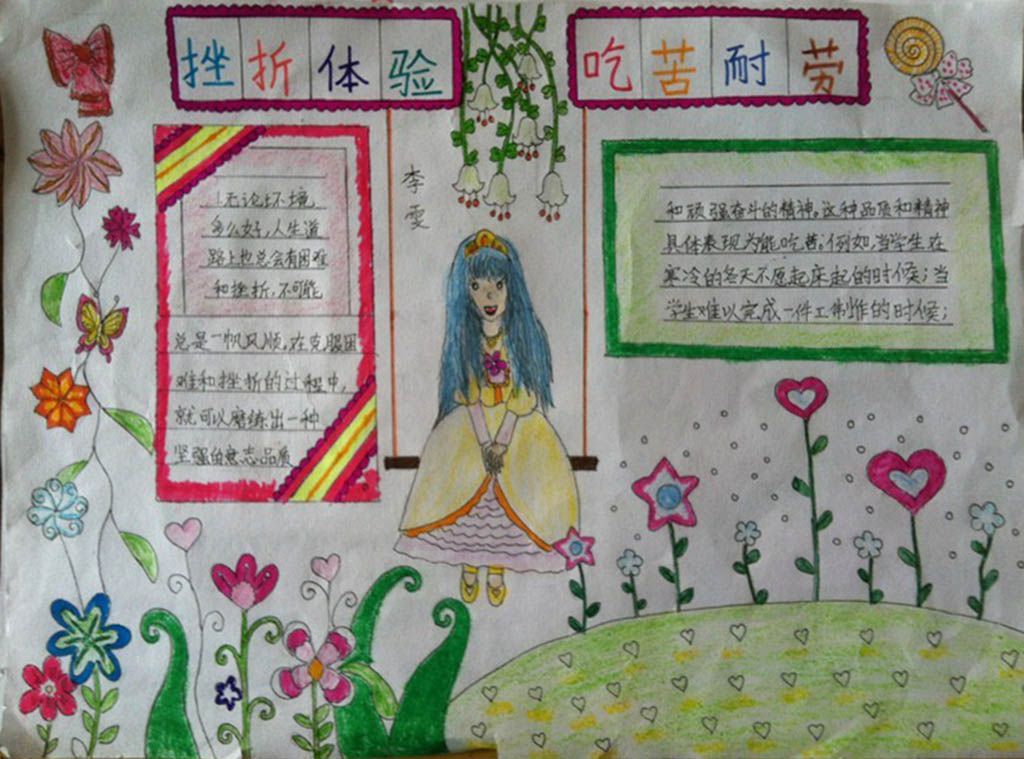 挫折体验
吃苦耐劳
李雯
1.无论环境
多么好,人生道
路上也总会有困难
和挫折,不可能
总是一帆风顺,在克服困
难和挫折的过程中,
就可以磨练出一种
坚强的意志品质
和顽强奋斗的精神。这种品质和精神
具体表现为能吃苦。例如,当学生在
寒冷的冬天不愿起床起的时候;当
学生难以完成一件工制作的时候;